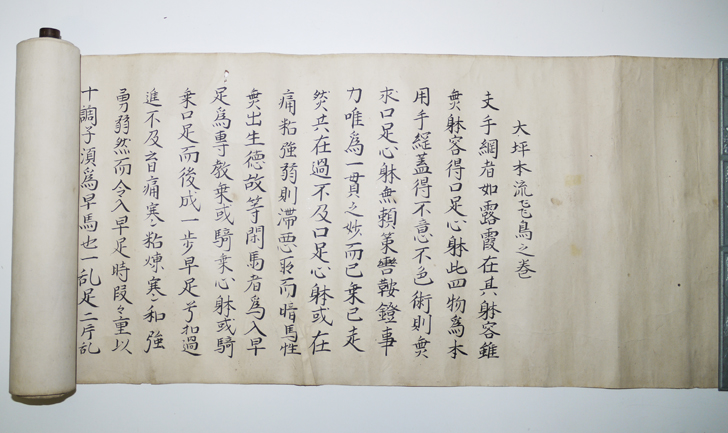 大坪本流飛鳥之巻
夫手綱者如露霞在其躰容雖
無躰容得口足心躰此四物為本
用手綱蓋得不意不色術則無
求口足心躰無頼策轡鞍鐙事
力唯為一貫之妙而已乗已走
然共在過不及口足心躰或在
痛粘強弱則滞悪取而暗馬性
無出生徳故等閑馬者為入早
足為専教乗或騎乗心躰或騎
乗口足而後成一歩早足兮扣過
進不及旨痛寒〻粘煉寒〻和強
勇弱然而令入早足時段〻重以
十調子須為早馬也一乱足二片乱